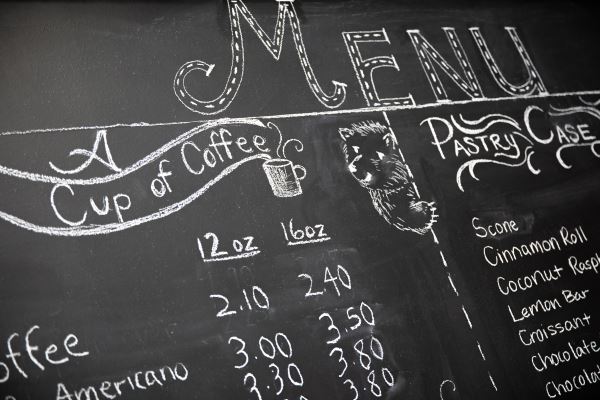 MENU
A
Cup of Coffee
12 oz 16oz
2.10 2.40
3.00 3.50
3.30 3.80
3.80
Americano
PASTRY CASE
Scone
Cinnamon Roll
Coconut
Lemon Bar
Croissant
Chocolate